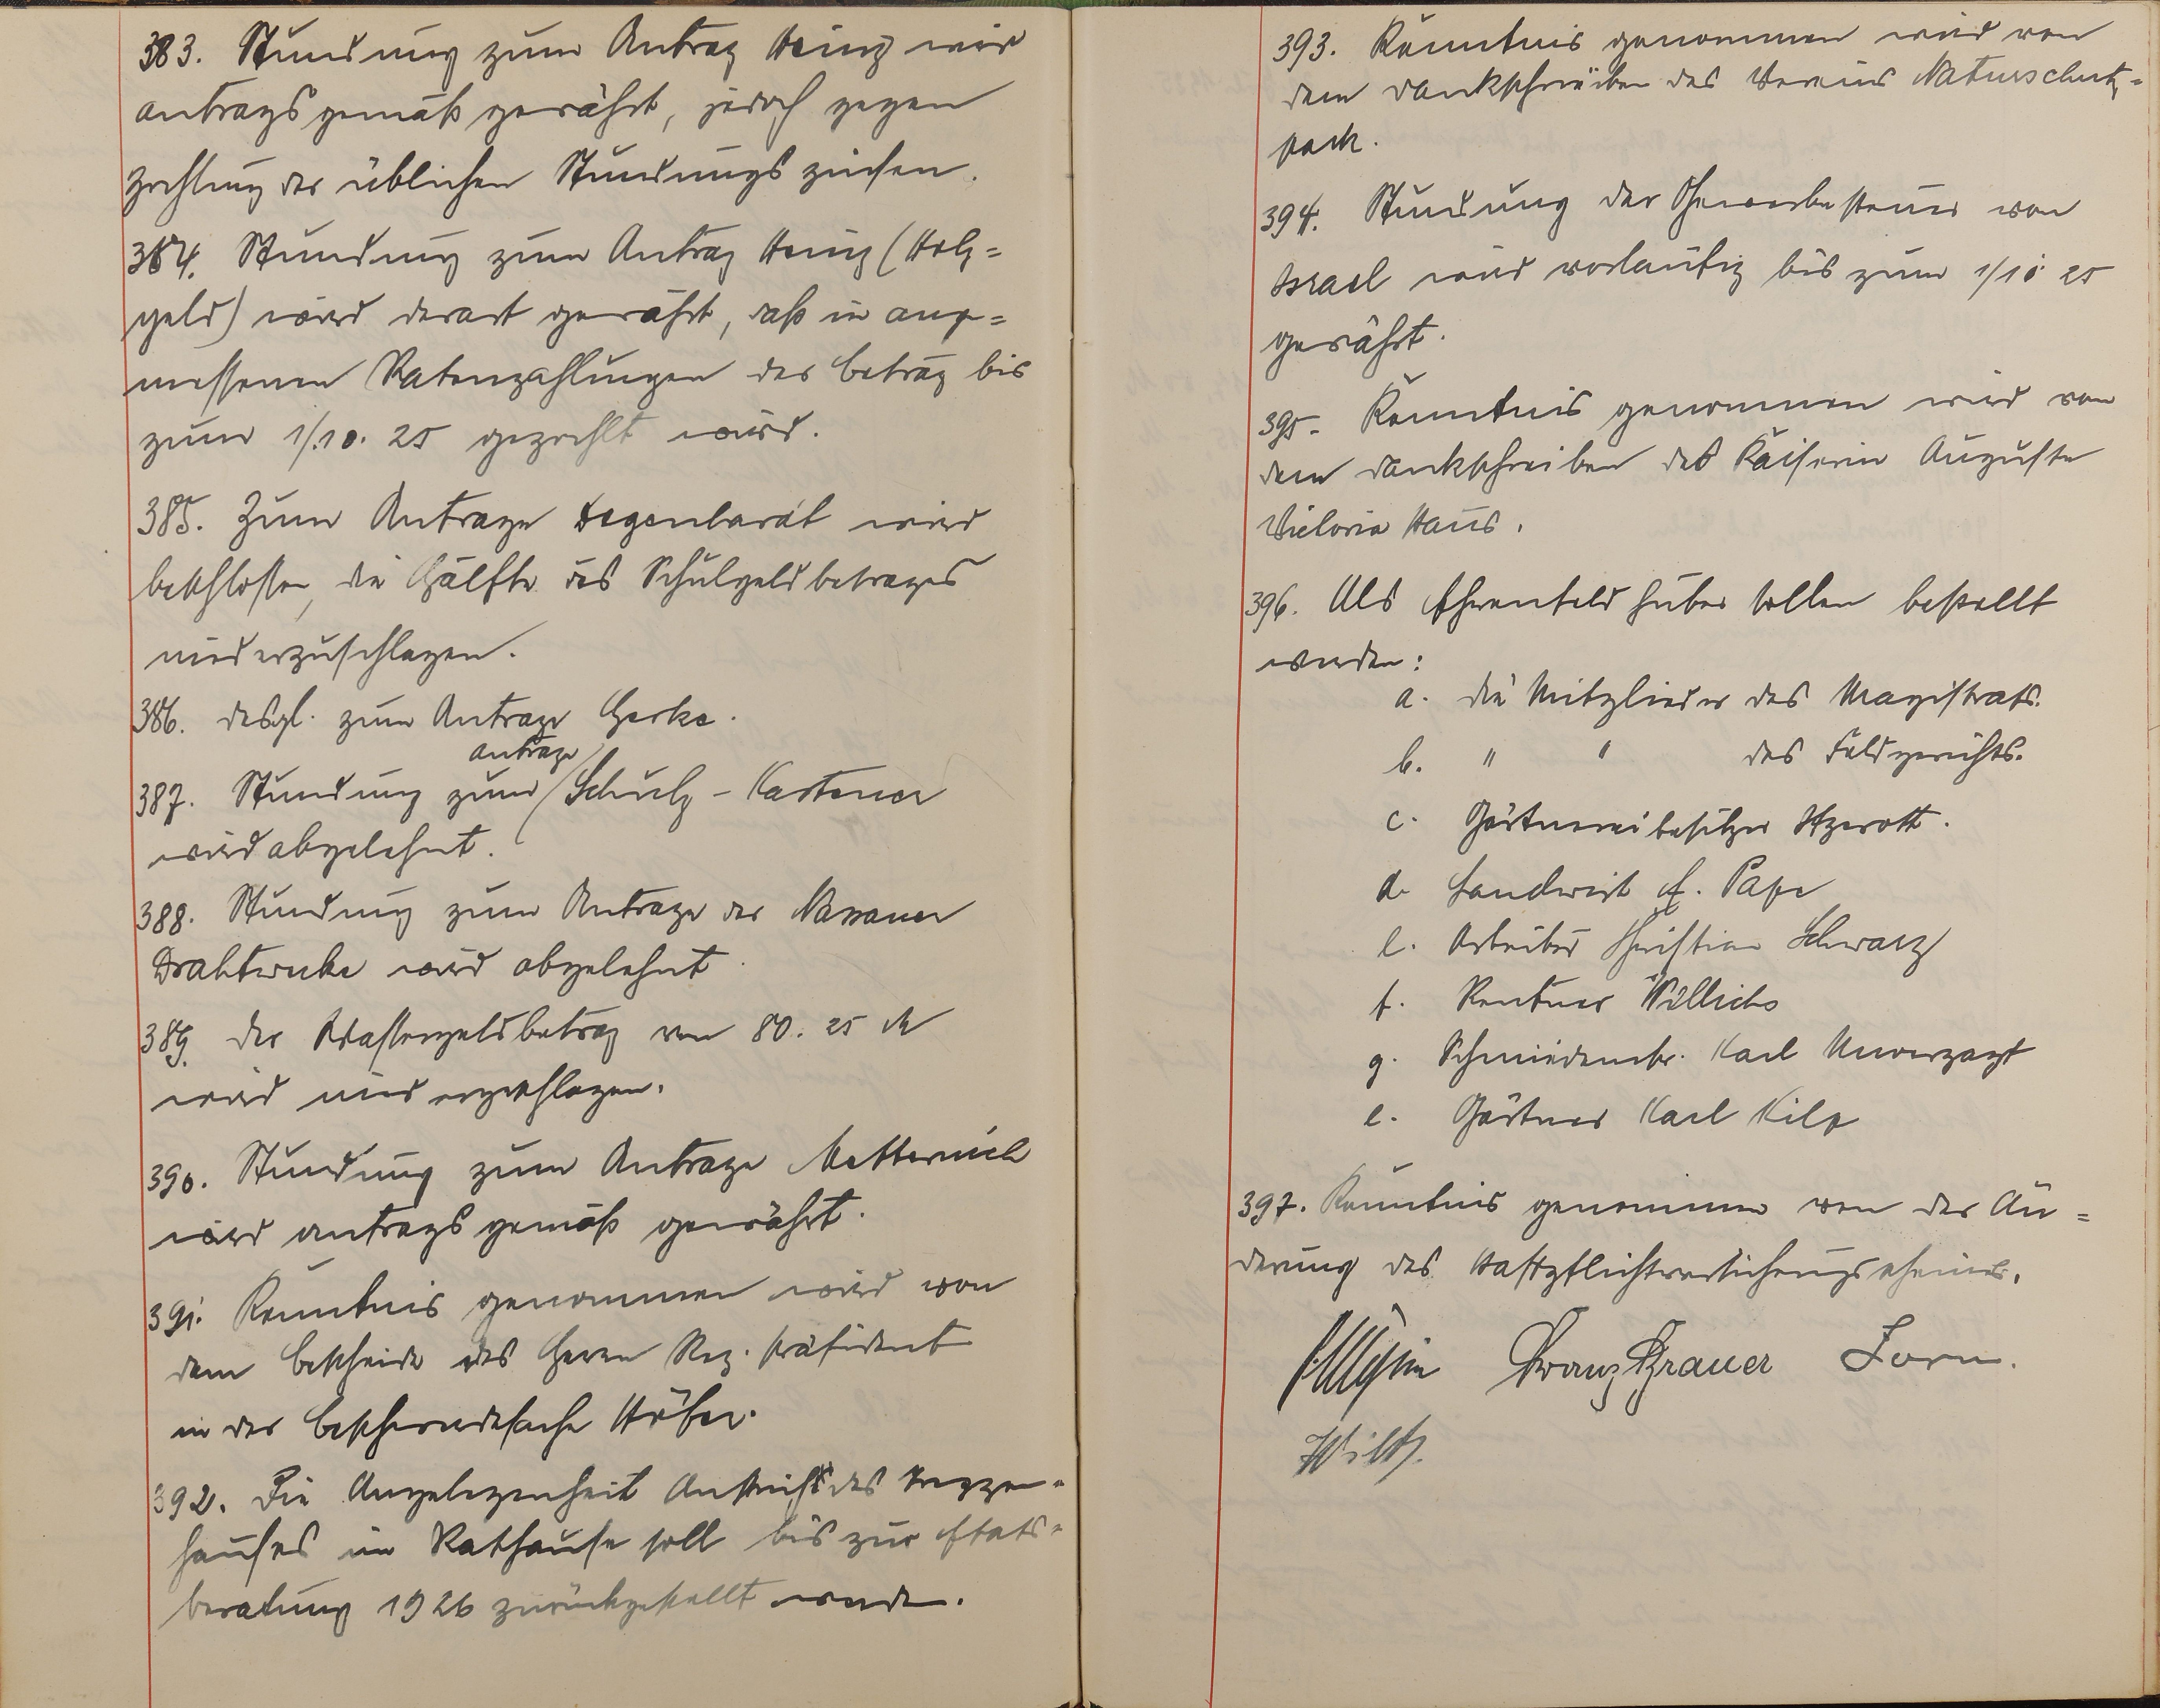 383. Stundung zum Antrag Heinz wird
antragsgemäß gewährt, jedoch gegen
Zahlung der üblichen Stundungszinsen.
384. Stundung zum Antrag Heinz (Holz=
geld) wird derart gewährt, daß in ange=
messenen Ratenzahlungen der Betrag bis
zum 1/.10. 25 gezahlt wird.
385. Zum Antrage Degenhardt wird
beschlossen, die Hälfte des Schulgeldbetrages
niederzuschlagen.
386. desgl. zum Antrage Gerke.
387. Stundung zum Antrage Schulz - Kastener
wird abgelehnt.
388. Stundung zum Antrage der Nassauer
Drahtwerke wird abgelehnt.
389. Der Wassergeldbetrag von 80.25 M
wird niedergeschlagen.
390. Stundung zum Antrage Metternich
wird antragsgemäß gewährt.
391. Kenntnis genommen wird von
dem Bescheide des Herrn Reg. Präsident
in der Beschwerdesache Höfer.
392. Die Angelegenheit Anstrich des Treppen=
hauses im Rathause soll bis zur Etats=
beratung 1926 zurückgestellt werden.
393. Kenntnis genommen wird von
dem Dankschreiben des Vereins Naturschutz=
park.
394. Stundung der Gewerbesteuer von
Israel wird vorläufig bis zum 1/10 25
gewährt.
395. Kenntnis genommen wird von
dem Dankschreiben des Kaiserin Auguste
Victoria Haus.
396. Als Ehrenfeldhüter sollen bestellt
werden:
a. die Mitglieder des Magistrats.
b. " " des Feldgerichts.
c. Gärtnereibesitzer Itzerott.
d. Landwirt E. Pape
e. Arbeiter Christian Schwarz
f. Rentner Willichs
g. Schmiedemstr. Karl Unverzagt
e. Gärtner Karl Kilp
397. Kenntnis genommen von der Än=
derung des Haftpflichtversicherungsscheines.
Franz Brauer Zorn.
Wilh.